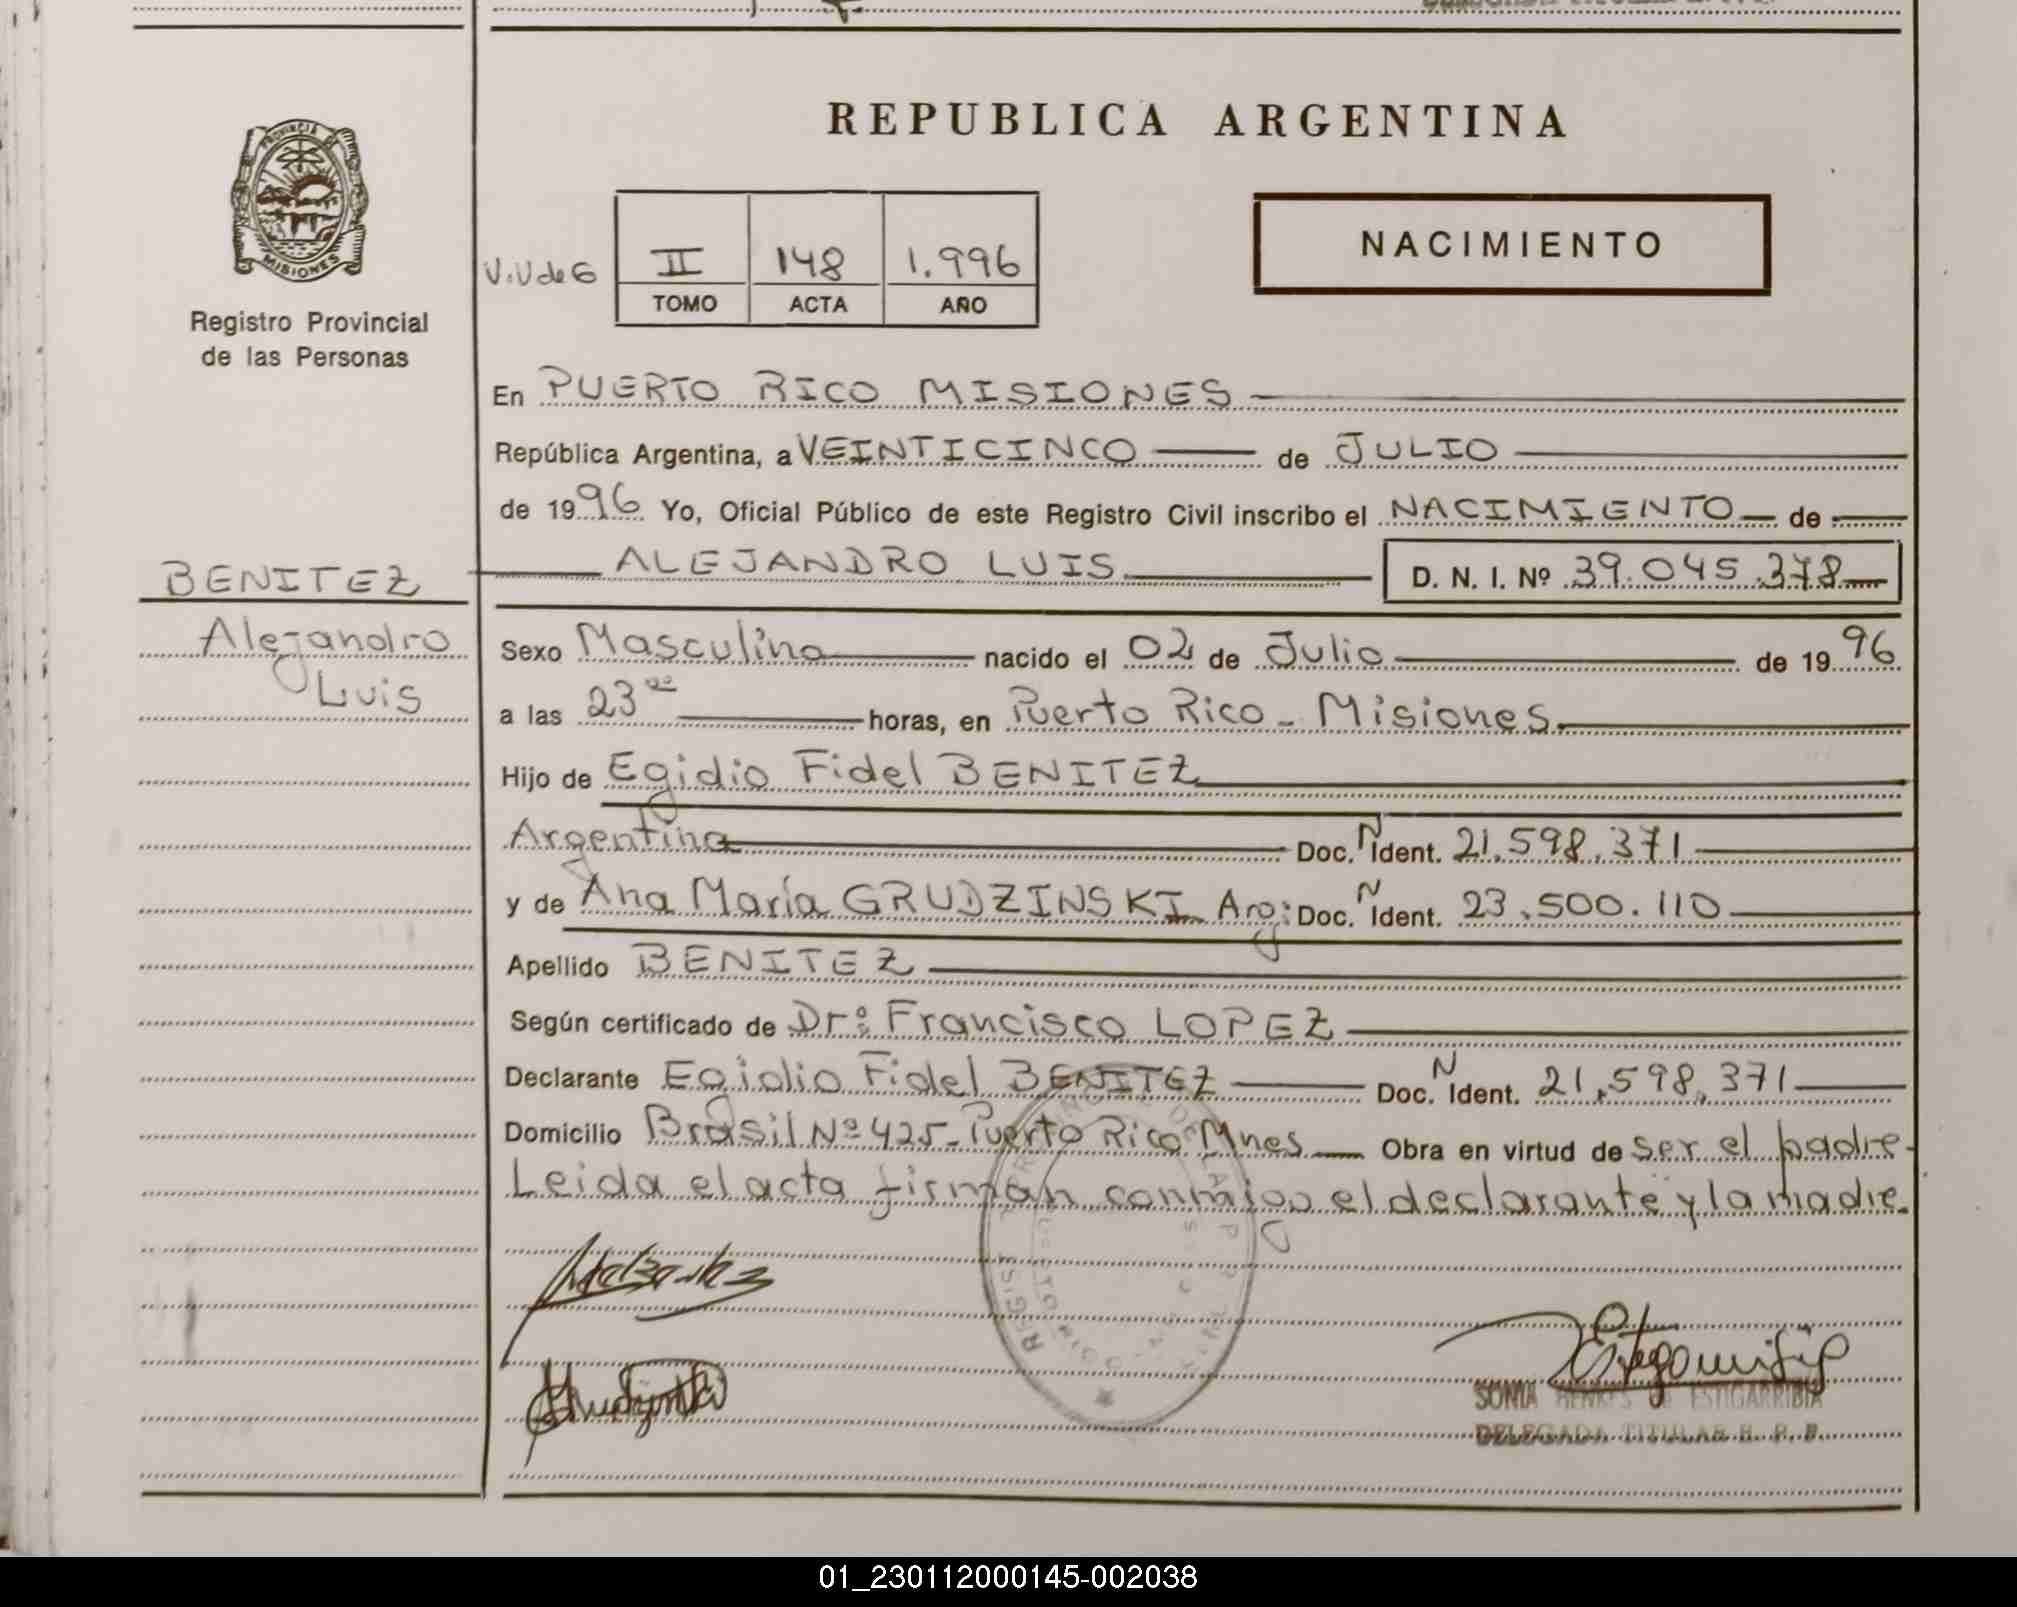 REPUBLICA ARGENTINA
PROVINCIA DE
MISIONES
Registro Provincial
de las Personas
NACIMIENTO
V.V de G
II 148 1.996
TOMO ACTA AÑO
En PUERTO RICO MISIONES
República Argentina, a VEINTICINCO de JULIO
de 1996 Yo, Oficial Público de este Registro Civil inscribo el NACIMIENTO de
BENITEZ
ALEJANDRO LUIS D. N. I. Nº 39.045.378
Alejandro
Luis
Sexo Masculino nacido el 02 de Julio de 1996
a las 23 00 horas, en Puerto Rico - Misiones
Hijo de Egidio Fidel BENITEZ
Argentina Doc. N Ident. 21.598.371
y de Ana María GRUDZINSKI Arg: Doc. N Ident. 23.500.110
Apellido BENITEZ
Según certificado de Drº: Francisco LOPEZ
Declarante Egidio Fidel BENITEZ Doc. N Ident. 21.598.371
Domicilio Brasil Nº 425 - Puerto Rico Mnes Obra en virtud de ser el padre-
Leida el acta firman conmigo el declarante y la madre.
SONIA HENKES de ESTIGARRIBIA
DELEGADA TITULAR R. P. P.
01_230112000145-002038